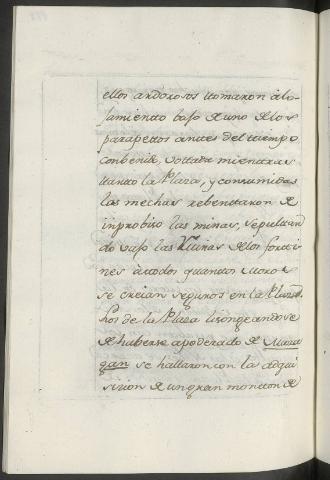 ellos ardorosos tomaron alo-
jamiento bajo de uno de los
parapettos antes del tiempo
conbenido, votada mientras
tanto la Plaza, y consumidas
las mechas rebenttaron de
inprobiso las minas, sepultan
do vajo las Ruinas de los forti
nes á todos quantos Moros
se creian seguros en la Plaza
de la Plaza lisongeandose
de haberse apoderado de Maza
gan se hallaron con la adqui
sicion de un gran monton de